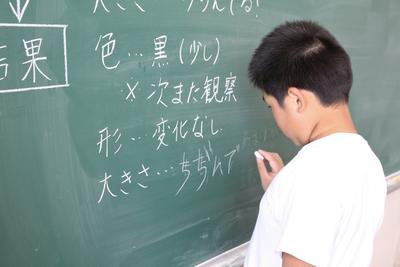 結果
色…黒(少し)
※次また観察
形…変化なし
大きさ…ちぢんで